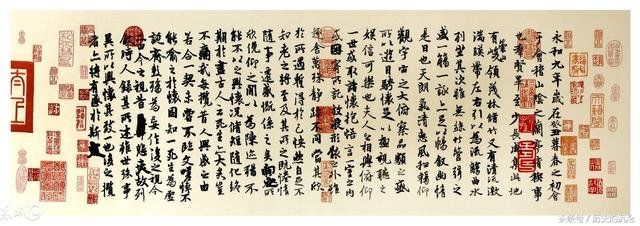 永和九年歲在癸丑暮春之初會
于會稽山陰之蘭亭脩稧事
也羣賢畢至少長咸集此地
有崇山峻領茂林脩竹又有清流激
湍暎帶左右引以為流觴曲水
列坐其次雖無絲竹管弦之
盛一觴一詠亦足以暢敘幽情
是日也天朗氣清惠風和暢仰
觀宇宙之大俯察品類之盛
所以遊目騁懷足以極視聽之
娛信可樂也夫人之相與俯仰
一世或取諸懷抱悟言一室之內
或因寄所託放浪形骸之外雖
趣舍萬殊靜躁不同當其欣
於所遇暫得於己怏然自足不
知老之將至及其所之既惓情
隨事遷感慨係之矣向之所
欣俛仰之間以為陳迹猶不
能不以之興懷況脩短隨化終
期於盡古人云死生亦大矣豈
不痛哉每攬昔人興感之由
若合一契未嘗不臨文嗟悼不
能喻之於懷固知一死生為虛
誕齊彭殤為妄作後之視今
亦由今之視昔悲夫故列
敘時人錄其所述雖世殊事
異所以興懷其致一也後之攬
者亦將有感於斯
头条号 /